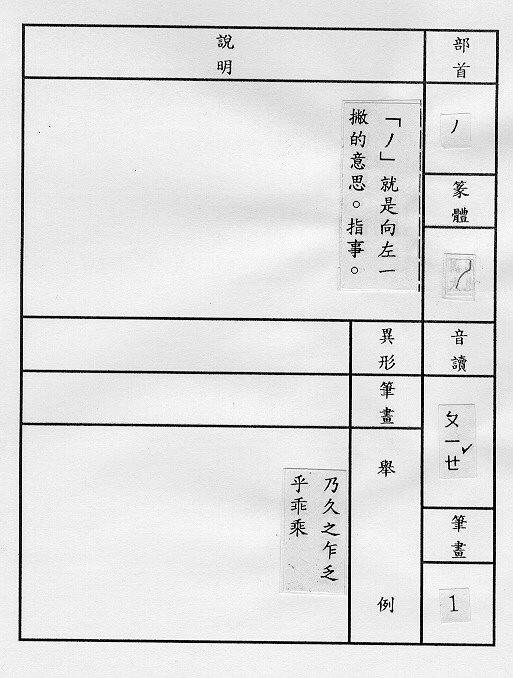 部首
丿
篆體
音讀
ㄆㄧㄝˇ
筆畫
1
說明
「丿」就是向左一
撇的意思。指事。
異形
筆畫
舉例
乃久之乍乏
乎乖乘